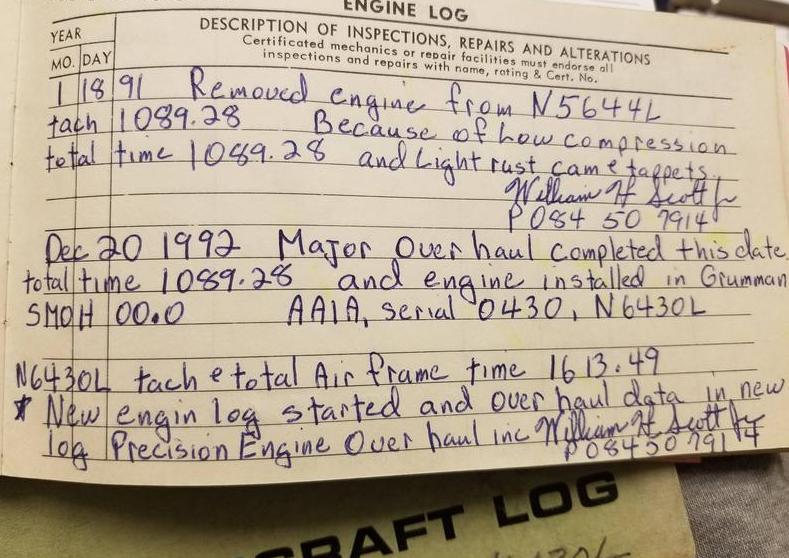 ENGINE LOG
YEAR
DESCRIPTION OF INSPECTIONS, REPAIRS AND ALTERATIONS
Certificated mechanics or repair facilities must endorse all
MO. DAY
inspections and repairs with name, rating & Cert. No.
1 18 91 Removed engine from N5644L
tach 1089.28 Because of Low compression
total time 1089.28 and Light rust cam & tappets.
William H Scott Jr
P 084 50 7914
Dec 20 1992 Major Over haul completed this date.
total time 1089.28 and engine installed in Grumman
SMOH 00.0 AA1A, serial 0430, N6430L
N6430L tach & total Air frame time 1613.49
* New engin log started and over haul data in new
log Precision Engine Over haul inc William H Scott Jr
P 084 50 7914
RAFT LOG